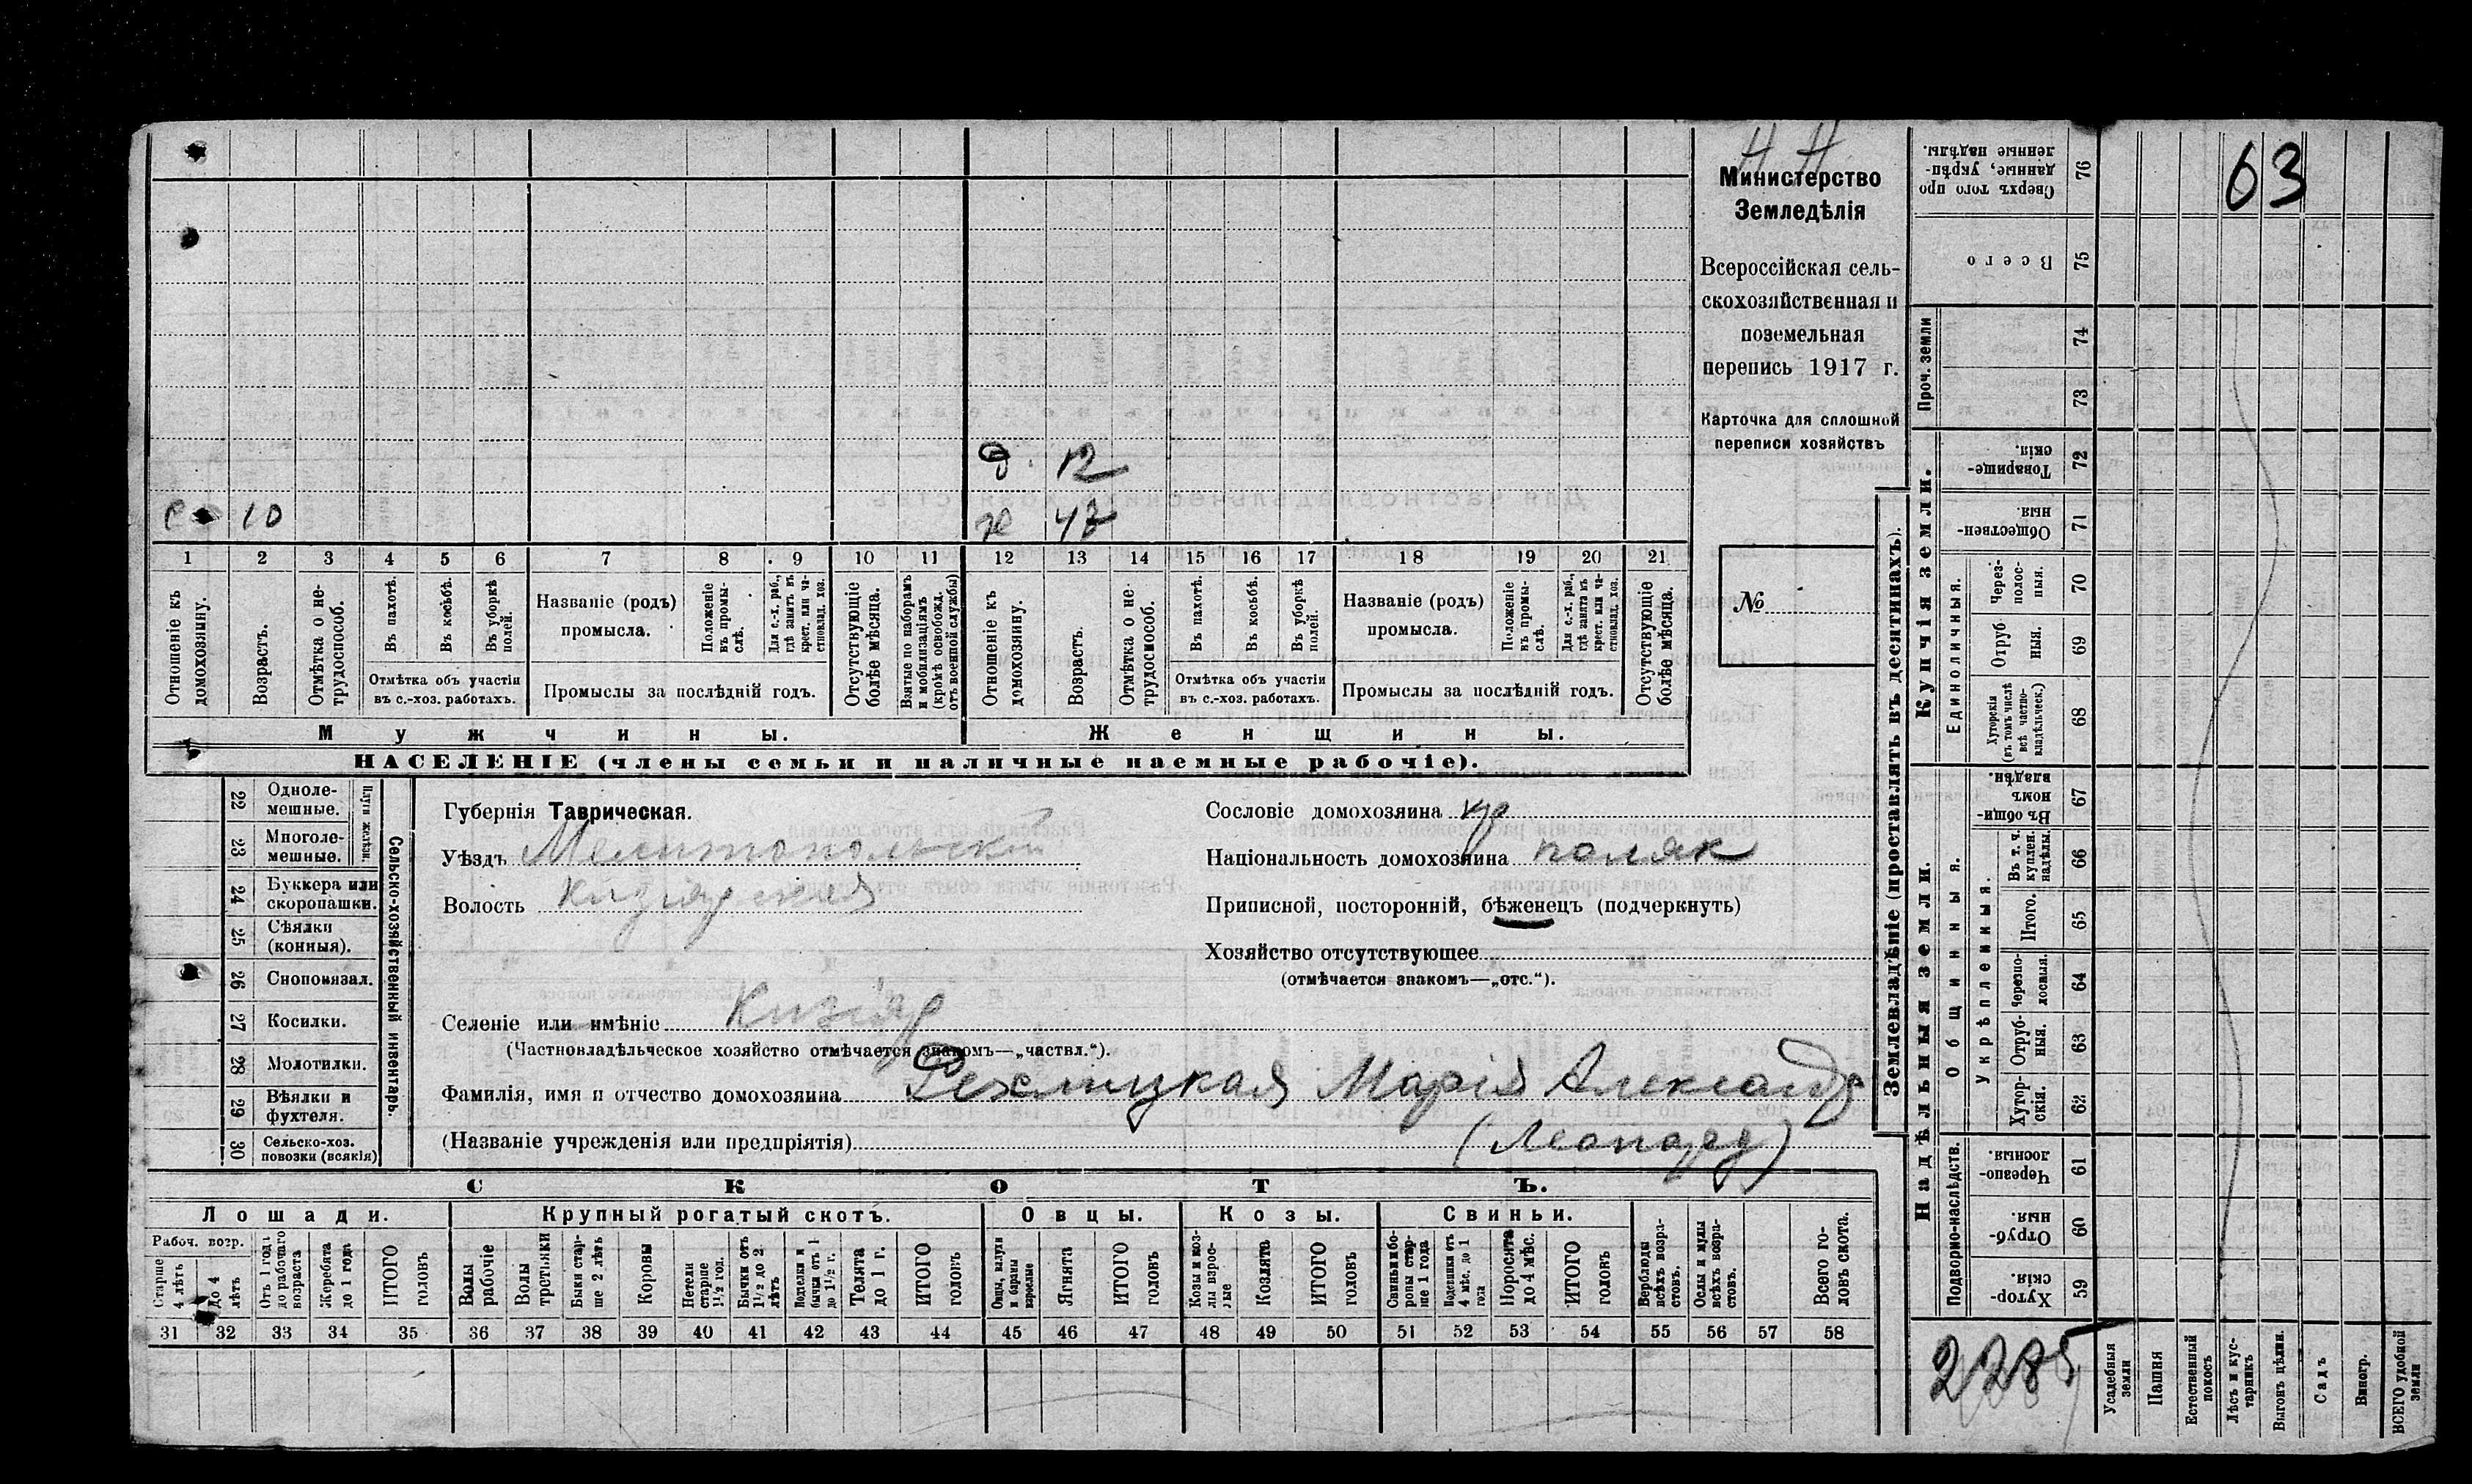 Н Н
63
Министерство
Земледѣлія
Всероссійская сель-
скохозяйственная и
поземельная
перепись 1917 г.
Карточка для сплошной
переписи хозяйствъ
№
д. 12
с 10
ж 47
1 2 3 4 5 6 7 8 9 10 11 12 13 14 15 16 17 18 19 20 21
Отношеніе къ домохозяину.
Возрастъ.
Отмѣтка о не-трудоспособ.
Въ пахотѣ.
Въ косьбѣ.
Въ уборкѣ полей.
Отмѣтка объ участіи
въ с.-хоз. работахъ.
Названіе (родъ)
промысла.
Положеніе въ промы-слѣ.
Для с.-х. раб., гдѣ занятъ въ крест. или ча-стновлад. хоз.
Промыслы за послѣдній годъ.
Отсутствующіе болѣе мѣсяца.
Взятые по наборамъ и мобилизаціямъ (кромѣ освобожд. отъ военной службы)
Отношеніе къ домохозяину.
Возрастъ.
Отмѣтка о не-трудоспособ.
Въ пахотѣ.
Въ косьбѣ.
Въ уборкѣ полей.
Отмѣтка объ участіи
въ с.-хоз. работахъ.
Названіе (родъ)
промысла.
Положеніе въ промы-слѣ.
Для с.-х. раб., гдѣ занята въ крест. или ча-стновлад. хоз.
Промыслы за послѣдній годъ.
Отсутствующіе болѣе мѣсяца.
Мужчины.
Женщины.
НАСЕЛЕНІЕ (члены семьи и наличные наемные рабочіе).
22 Одноле-мешные.
23 Многоле-мешные.
Плуги желѣзн.
24 Буккера или скоропашки.
25 Сѣялки (конныя).
26 Сноповязал.
27 Косилки.
28 Молотилки.
29 Вѣялки и фухтеля.
30 Сельско-хоз. повозки (всякія)
Сельско-хозяйственный инвентарь.
Губернія Таврическая.
Уѣздъ Мелитопольскій
Волость Кизіярская
Сословіе домохозяина кр
Національность домохозяина поляк
Приписной, посторонній, бѣженецъ (подчеркнуть)
Хозяйство отсутствующее
(отмѣчается знакомъ—„отс.“).
Селеніе или имѣніе Кизіяр
(Частновладѣльческое хозяйство отмѣчается знакомъ—„частвл.“).
Фамилія, имя и отчество домохозяина Марія Александр
(Названіе учрежденія или предпріятія) (Леопард)
СКОТЪ.
Лошади.
Крупный рогатый скотъ.
Овцы.
Козы.
Свиньи.
Рабоч. возр.
Старше 4 лѣтъ
До 4 лѣтъ
Отъ 1 года до рабочаго возраста
Жеребята до 1 года
ИТОГО головъ
Волы рабочіе
Волы третьяки
Быки стар-ше 2 лѣтъ
Коровы
Нетели старше 1½ год.
Бычки отъ 1½ до 2 лѣтъ
Подтелки и бычки отъ 1 до 1½ г.
Телята до 1 г.
ИТОГО головъ
Овцы, валухи и бараны взрослые
Ягнята
ИТОГО головъ
Козы и коз-лы взрос-лые
Козлята
ИТОГО головъ
Свиньи и бо-ровы стар-ше 1 года
Подсвинки отъ 4 мѣс. до 1 года
Поросята до 4 мѣс.
ИТОГО головъ
Верблюды всѣхъ возра-стовъ.
Ослы и мулы всѣхъ возра-стовъ.
Всего го-ловъ скота.
31 32 33 34 35 36 37 38 39 40 41 42 43 44 45 46 47 48 49 50 51 52 53 54 55 56 57 58
Землевладѣніе (проставлять въ десятинахъ).
76 Сверхъ того про данные, укрѣп-ленные надѣлы.
75 Всего
Проч. земли
74
73
Купчія земли.
72 Товарище-скія.
71 Обществен-ныя.
Единоличныя.
70 Через-полос-ныя.
69 Отруб ныя.
68 Хуторскія (въ томъ числѣ всѣ частно-владѣльческ.)
Надѣльныя земли.
67 Въ общи-номъ владѣн.
Общинныя.
Укрѣпленныя.
66 Въ т. ч. куплен. надѣлы.
65 Итого.
64 Черезпо-лосныя.
63 Отруб-ныя.
62 Хутор-скія.
Подворно-наслѣдств.
61 Черезпо-лосныя.
60 Отруб-ныя.
59 Хутор-скія.
2285
Усадебныя земли
Пашня
Естественный покосъ
Лѣсъ и кус-тарникъ
Выгонъ цѣлин.
Садъ
Виногр.
ВСЕГО удобной земли